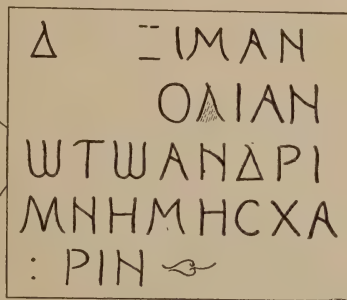 Δ ΞΙΜΑΝ
ΟΛΙΑΝ
ωΤωΑΝΔΡΙ
ΜΝΗΜΗϹΧΑ
: ΡΙΝ ❧